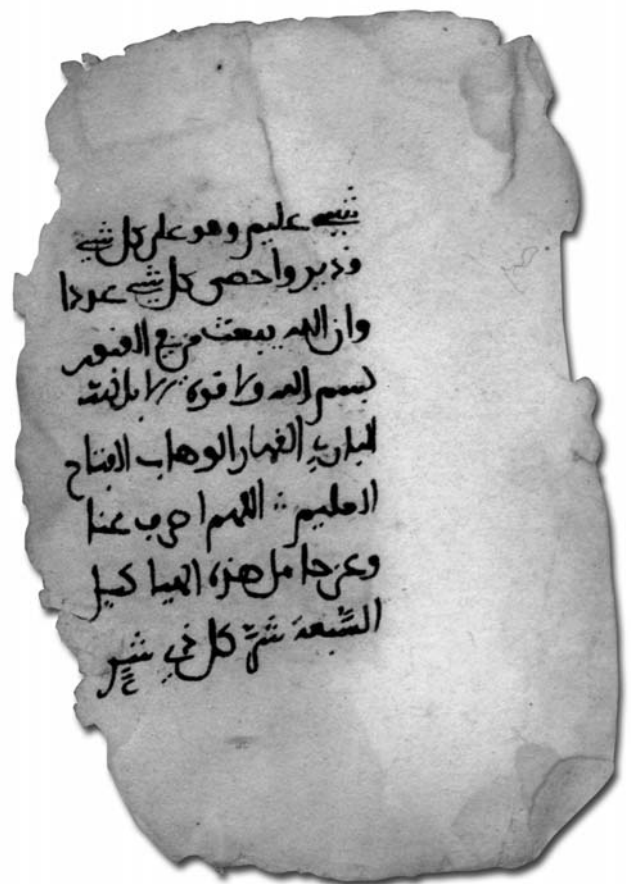 شيء عليم وهو على كل شيء
قدير واحصى كل شيء عددا
وان الله يبعث من في القبور
بسم الله ولا قوة الا بالله
البارئ القهار الوهاب الفتاح
العليم ∴ اللهم اصرف عنا
وعن حامل هذه الهياكل
السبعة شر كل ذي شر